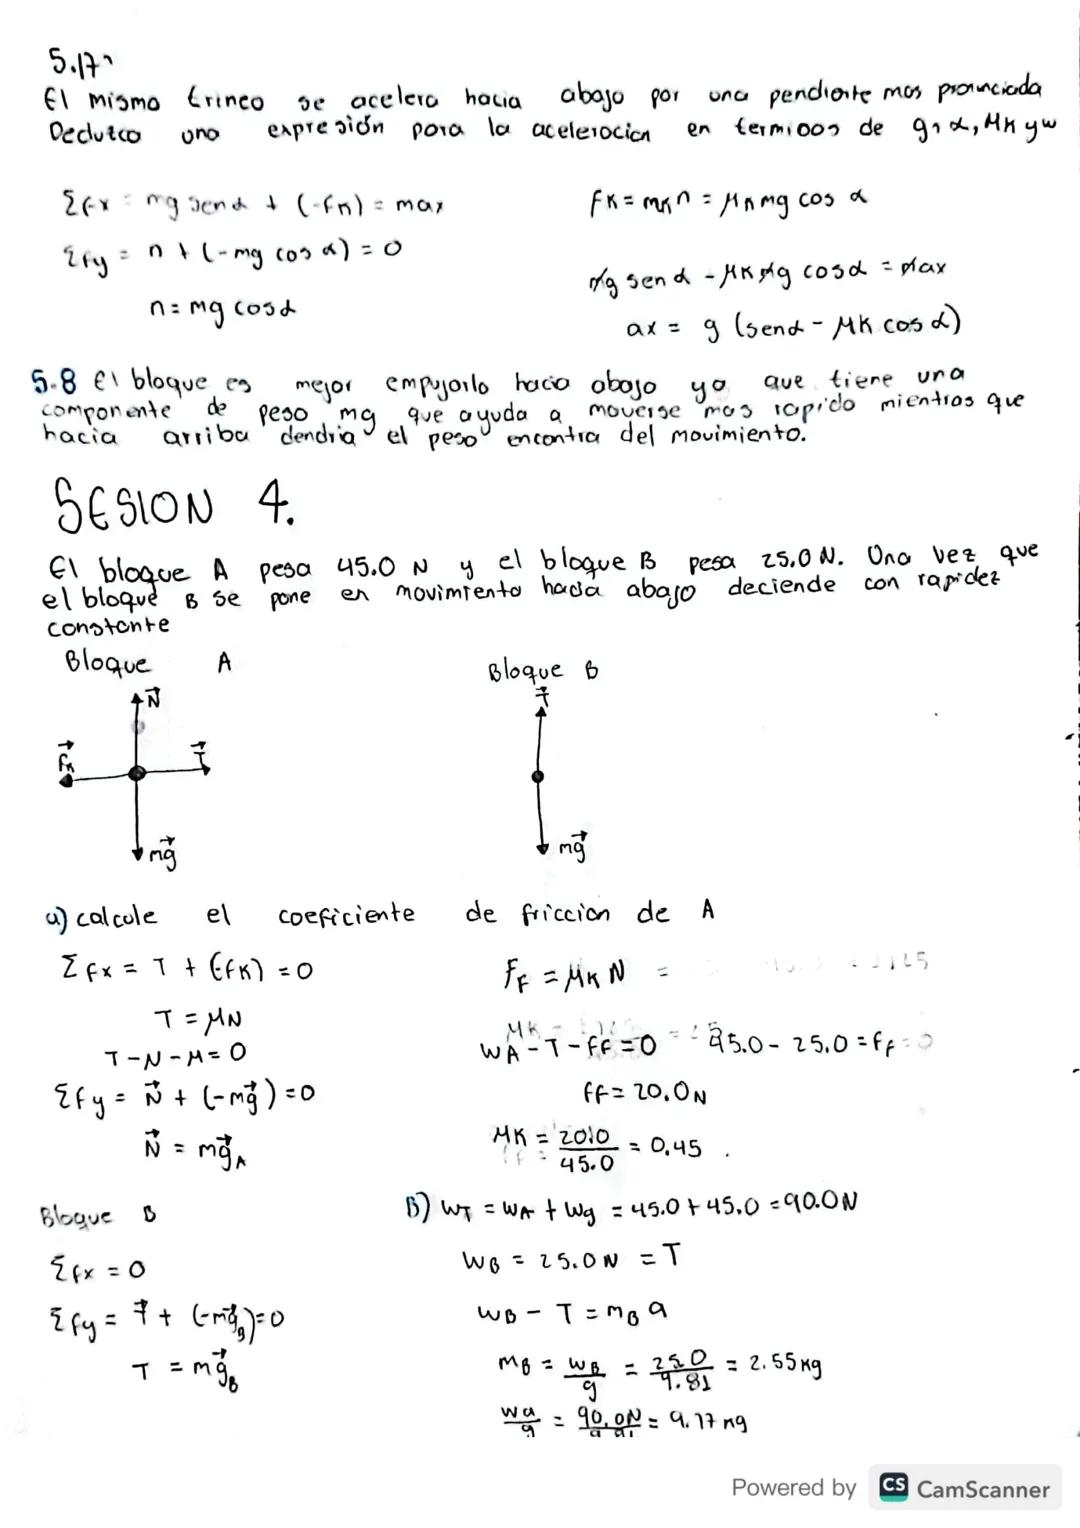 5.17
El mismo trineo se acelera hacia abajo por una pendiente mas pronunciada
Deduzca una expresión para la aceleracion en terminos de g, α, μK y w
Σfx = mg senα + (-fn) = max
fK = mKn = μnmg cos α
Σfy = n + (-mg cos α) = 0
mg senα - μKmg cosα = max
n = mg cosα
ax = g (senα - μK cos α)
5.8 El bloque es mejor empujarlo hacia abajo ya que tiene una
componente de peso mg que ayuda a moverse mas rapido mientras que
hacia arriba dendria el peso encontra del movimiento.
SESION 4.
El bloque A pesa 45.0 N y el bloque B pesa 25.0 N. Una vez que
el bloque B se pone en movimiento hacia abajo deciende con rapidez
constante
Bloque A
Bloque B
N
T
fK
T
mg
mg
a) calcule el coeficiente de friccion de A
Σfx = T + (-fK) = 0
FF = μK N =
T = μN
T - N - μ = 0
WA - T - fF = 0
45.0 - 25.0 = fF
Σfy = N + (-mg) = 0
fF = 20.0N
N = mgA
μK = 20.0/45.0 = 0.45
Bloque B
B) WT = WA + Wg = 45.0 + 45.0 = 90.0N
Σfx = 0
WB = 25.0N = T
Σfy = T + (-mgB) = 0
WB - T = mB a
T = mgB
MB = WB/g = 25.0/9.81 = 2.55Kg
Wa/g = 90.0N/9.81 = 9.17 Kg
Powered by CS CamScanner